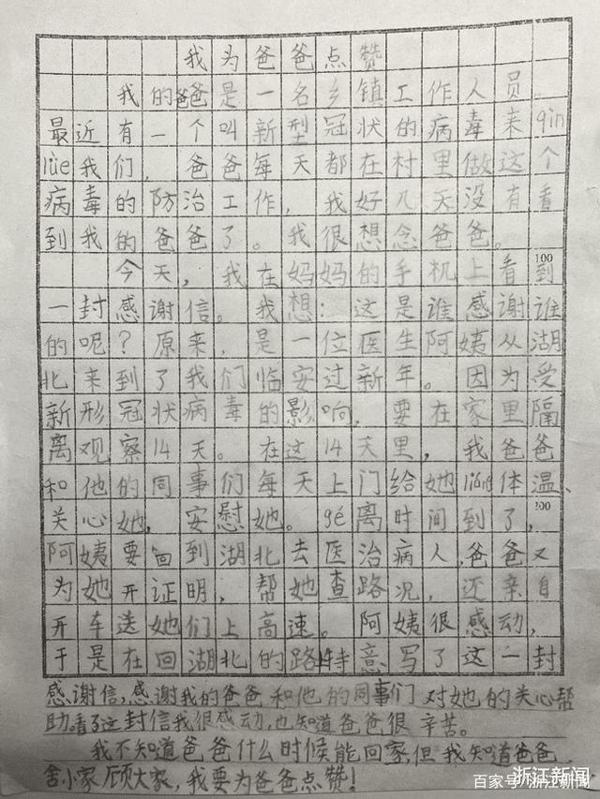 我为爸爸点赞
我的爸爸是一名乡镇工作人员
最近有一个叫新型冠状的病毒来qīn
lüè我们，爸爸每天都在村里做这个
病毒的防治工作，我好几天没有看
到我的爸爸了。我很想念爸爸。
今天，我在妈妈的手机上看到
100
一封感谢信。我想：这是谁感谢谁
的呢？原来，是一位医生阿姨从湖
北来到了我们临安过新年。因为受
新形冠状病毒的影响，要在家里隔
离观察14天。在这14天里，我爸爸
和他的同事们每天上门给她liáng体温、
关心她，安慰她。gé离时间到了，
200
阿姨要回到湖北去医治病人，爸爸又
为她开证明，帮她查路况，还亲自
开车送她们上高速。阿姨很感动，
于是在回湖北的路特意写了这一封
感谢信，感谢我的爸爸和他的同事们对她的关心帮
助。看了这封信我很感动，也知道爸爸很辛苦。
我不知道爸爸什么时候能回家，但我知道爸爸
舍小家顾大家，我要为爸爸点赞！
浙江新闻
百家号/浙江新闻